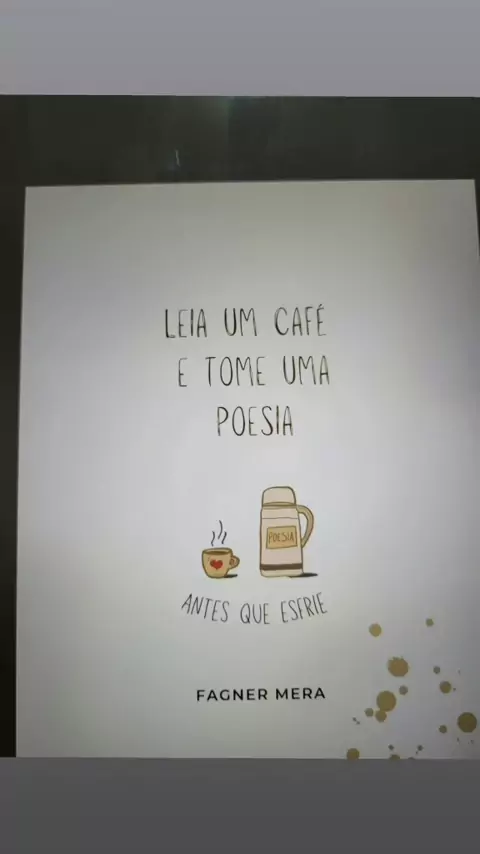 LEIA UM CAFÉ
E TOME UMA
POESIA
POESIA
ANTES QUE ESFRIE
FAGNER MERA